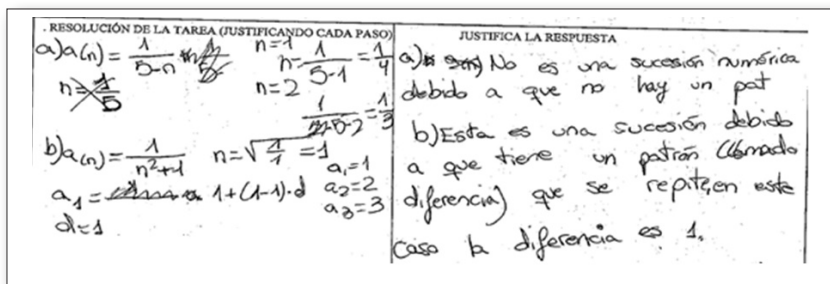 . RESOLUCIÓN DE LA TAREA (JUSTIFICANDO CADA PASO)
a) a(n) = 1/5-n
n=1 1/5-1 = 1/4
n = 1/5
n=2 1/5-2 = 1/3
b) a(n) = 1/n²+1 n=√1/1 = 1
a₁=1
a₁ = 1+(1-1)·d a₂=2
d=1 a₃=3
JUSTIFICA LA RESPUESTA
a) No es una sucesión numérica
debido a que no hay un pat
b) Esta es una sucesión debido
a que tiene un patrón (llamado
diferencia) que se repite, en este
caso la diferencia es 1.